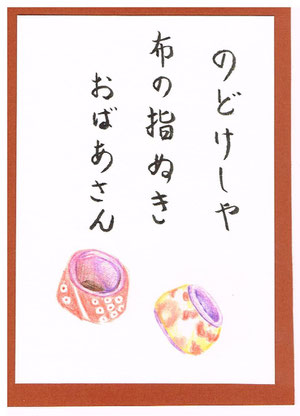 のどけしや
布の指ぬき
おばあさん